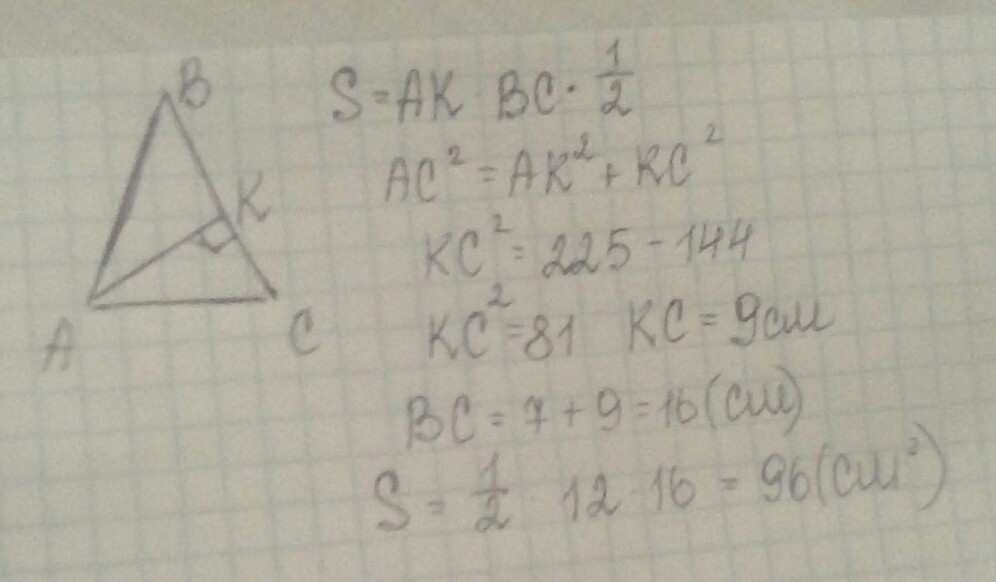 B
K
A
C
S = AK BC · 1/2
AC² = AK² + KC²
KC² = 225 - 144
KC² = 81 KC = 9см
BC = 7 + 9 = 16 (см)
S = 1/2 12 · 16 = 96 (см²)